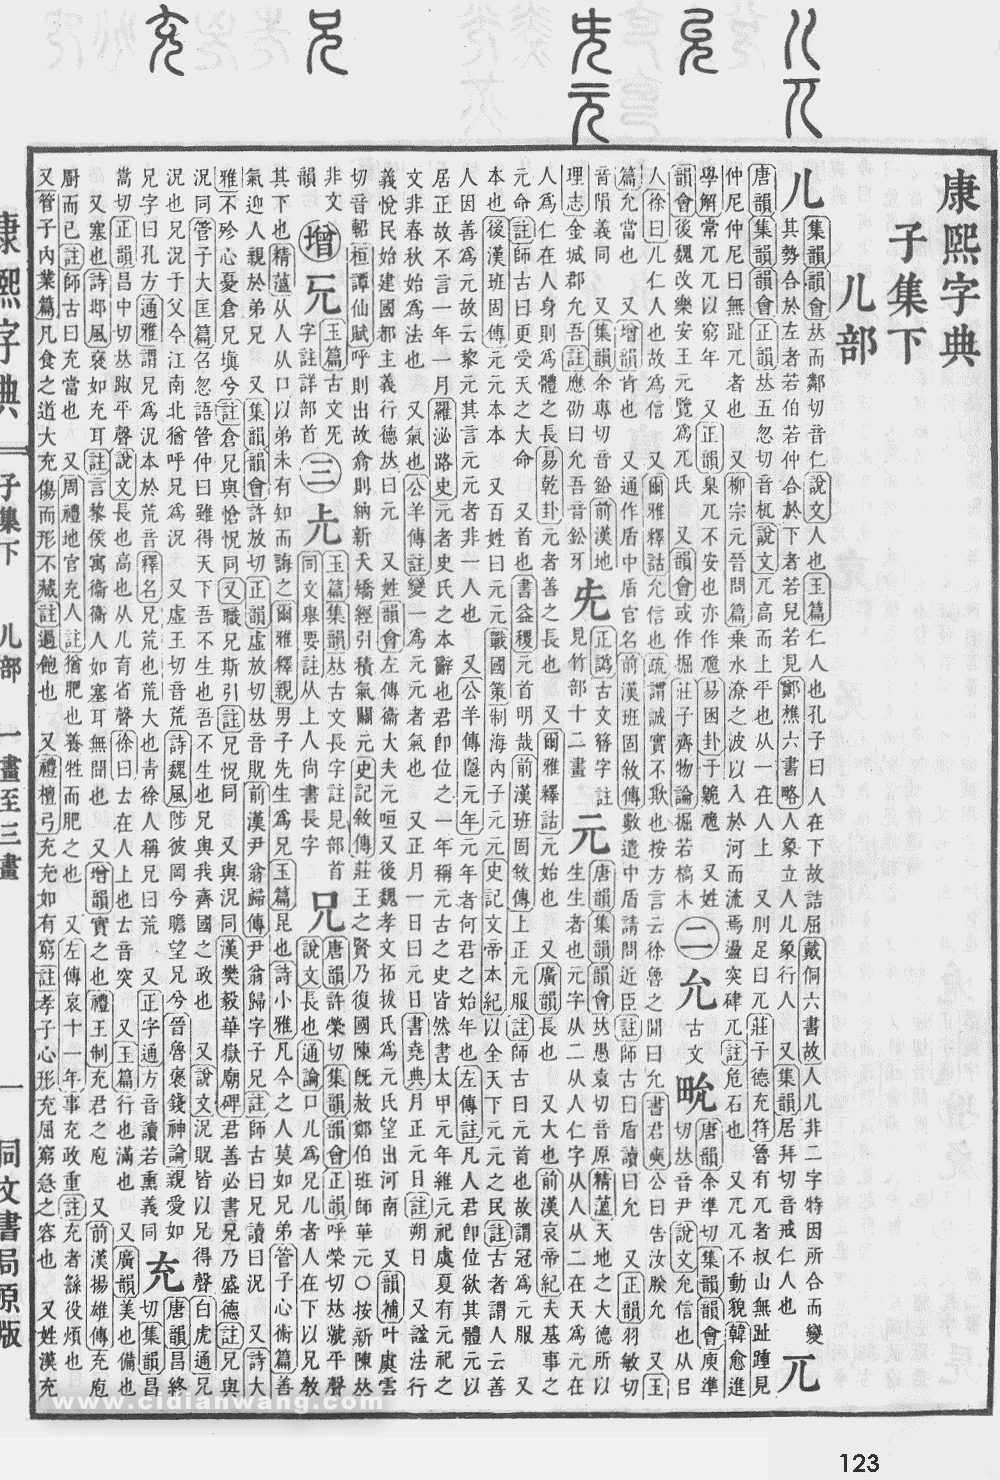 康熙字典
子集下
儿部
儿
集韻韻會𠀤而鄰切音仁說文人也玉篇仁人也孔子曰人在下故詰屈戴侗六書故人儿非二字特因所合而變
其勢合於左者若伯若仲合於下者若兒若見鄭樵六書略人象立人儿象行人 又集韻居拜切音戒仁人也
兀
唐韻集韻韻會正韻𠀤五忽切音杌說文兀高而上平也从一在人上 又刖足曰兀莊子德充符魯有兀者叔山無趾踵見
仲尼仲尼曰無趾兀者也 又柳宗元晉問篇乗水潦之波以入於河而流焉盪突硉兀註危石也 又兀兀不動貌韓愈進
學解常兀兀以窮年 又正韻臬兀不安也亦作卼易困卦于臲卼 又姓
韻會後魏改樂安王元覽爲兀氏 又韻會或作掘莊子齊物論掘若槁木
二
允
古文
㽙
唐韻余準切集韻韻會庾準
切𠀤音尹說文允信也从㠯
人徐曰儿仁人也故爲信 又爾雅釋詁允信也疏謂誠實不欺也按方言云徐魯之閒曰允書君奭公曰告汝朕允 又玉
篇允當也 又增韻肯也 又通作盾中盾官名前漢班固敘傳數遣中盾請問近臣註師古曰盾讀曰允 又正韻羽敏切
音隕義同 又集韻余專切音鉛前漢地
理志金城郡允吾註應劭曰允吾音鈆牙
兂
正譌古文簪字註
見竹部十二畫
元
唐韻集韻韻會𠀤愚袁切音原精薀天地之大德所以
生生者也元字从二从人仁字从人从二在天爲元在
人爲仁在人身則爲體之長易乾卦元者善之長也 又爾雅釋詁元始也 又廣韻長也 又大也前漢哀帝紀夫基事之
元命註師古曰更受天之大命 又首也書益稷元首明哉前漢班固敘傳上正元服註師古曰元首也故謂冠爲元服 又
本也後漢班固傳元元本本 又百姓曰元元戰國策制海內子元元史記文帝本紀以全天下元元之民註古者謂人云善
人因善爲元故云黎元其言元元者非一人也 又公羊傳隱元年元年者何君之始年也左傳註凡人君卽位欲其體元以
居正故不言一年一月羅泌路史元者史氏之本辭也君卽位之一年稱元古之史皆然書太甲元年維元祀虞夏有元祀之
文非春秋始爲法也 又氣也公羊傳註變一爲元元者氣也 又正月一日曰元日書堯典月正元日註朔日 又諡法行
義悅民始建國都主義行德𠀤曰元 又姓韻會左傳衞大夫元咺又後魏孝文拓拔氏爲元氏望出河南 又韻補叶虞雲
切音輑桓譚仙賦呼則出故翕則納新夭矯經引積氣關元史記敘傳莊王之賢乃復國陳旣赦鄭伯班師華元〇按新陳𠀤
非文
韻
增
兓
玉篇古文旡
字註詳部首
三
𠑷
玉篇集韻𠀤古文長字註見部首
同文舉要註从上人尙書長字
兄
唐韻許榮切集韻韻會正韻呼榮切𠀤虩平聲
說文長也通論口儿爲兄儿者人在下以兄敎
其下也精薀从人从口以弟未有知而誨之爾雅釋親男子先生爲兄玉篇昆也詩小雅凡今之人莫如兄弟管子心術篇善
氣迎人親於弟兄 又集韻韻會許放切正韻虛放切𠀤音貺前漢尹翁歸傳尹翁歸字子兄註師古曰兄讀曰況 又詩大
雅不殄心憂倉兄塡兮註倉兄與愴怳同又職兄斯引註兄怳同 又與況同漢樊毅華嶽廟碑君善必書兄乃盛德註兄與
況同管子大匡篇召忽語管仲曰雖得天下吾不生也兄與我齊國之政也 又說文況貺皆以兄得聲白虎通兄
況也兄況于父今江南北猶呼兄爲況 又虛王切音荒詩魏風陟彼岡兮瞻望兄兮晉魯褒錢神論親愛如
兄字曰孔方通雅謂兄爲況本於荒音釋名兄荒也荒大也靑徐人稱兄曰荒 又正字通方音讀若熏義同
充
唐韻昌終
切集韻昌
嵩切正韻昌中切𠀤踧平聲說文長也高也从儿育省聲徐曰𠫓在人上也𠫓音突 又玉篇行也滿也 又廣韻美也備也
又塞也詩邶風褎如充耳註言黎侯寓衞衞人如塞耳無聞也 又增韻實之也禮王制充君之庖 又前漢揚雄傳充庖
厨而已註師古曰充當也 又周禮地官充人註猶肥也養牲而肥之也 又左傳哀十一年事充政重註充者繇役煩也
又管子內業篇凡食之道大充傷而形不藏註過飽也 又禮檀弓充充如有窮註孝子心形充屈窮急之容也 又姓漢充
康熙字典 子集下 儿部 一畫至三畫 一 同文書局原版
www.cidianwang.com
123